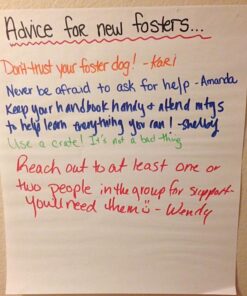 Advice for new fosters...
Don't trust your foster dog! - Kari
Never be afraid to ask for help - Amanda
Keep your handbook handy & attend mtgs
to help learn everything you can! - Shelby
Use a crate! It's not a bad thing
Reach out to at least one or
two people in the group for support -
you'll need them - Wendy